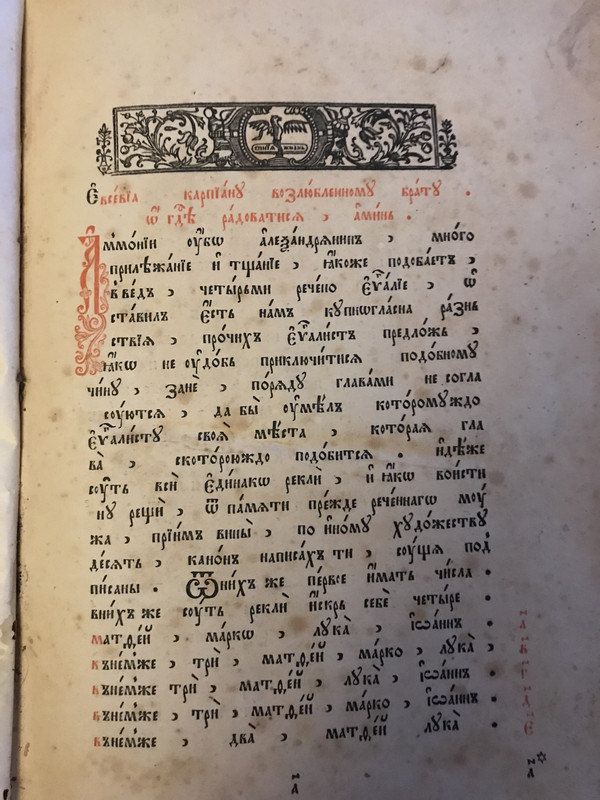 Є҆vсе́вїѧ карпїа́ну возлю́бленному бра́ту .
ѡ҆ гдⷭ҇ѣ ра́доватисѧ , а҆ми́нь .
А҆ммо́нїи ᲂу҆́бѡ а҆леѯа́ндрѧнинъ , мно́го
прилѣжа́нїе и҆ тща́нїе , ꙗ҆́коже подоба́етъ ,
в̾ве́дъ , четы́рьми рече́но є҆ѵⷢ҇а́лїе , ѡ҆
ста́вилъ є҆́сть на́мъ купнѡгла́сна ра́знь
ствїѧ , про́чихъ є҆ѵⷢ҇али́стъ предло́жь ,
ꙗ҆́кѡ не ᲂу҆до́бь приключи́тисѧ подо́бному
чи́ну , занѐ , по́рѧду глава́ми не согла
су́ютсѧ , да бы̀ ᲂу҆мѣ́лъ котором́уждо
є҆ѵⷢ҇али́сту своѧ̀ мѣ́ста , кото́раѧ гла
ва̀ , ското́роюждо подо́битсѧ . и҆дѣ́же
су́ть всѝ є҆ди́накѡ реклѝ , и҆ ꙗ҆́кѡ во́исти
ну решѝ , ѿ па́мѧти пре́жде рече́ннагѡ мꙋ́
жа , прїи́мъ вины̀ , по и҆но́му худо́жеству
де́сѧть , кано́нъ написа́хъ ти , су́щѧ под
пи́саны . Ѿни́хъ же пе́рвое и҆́мать чи́сла .
вни́хъ же су́ть реклѝ и҆́скрь себѐ четы́ре .
матѳе́й , ма́рко , лука̀ , і҆ѡа́ннъ .
вне́мже , трѝ , матѳе́й , ма́рко , лука̀ ,
вне́мже трѝ , матѳе́й , лука̀ , і҆ѡа́ннъ .
вне́мже , трѝ , матѳе́й , ма́рко , і҆ѡа́ннъ .
вне́мже , два̀ , матѳе́й лука̀ .